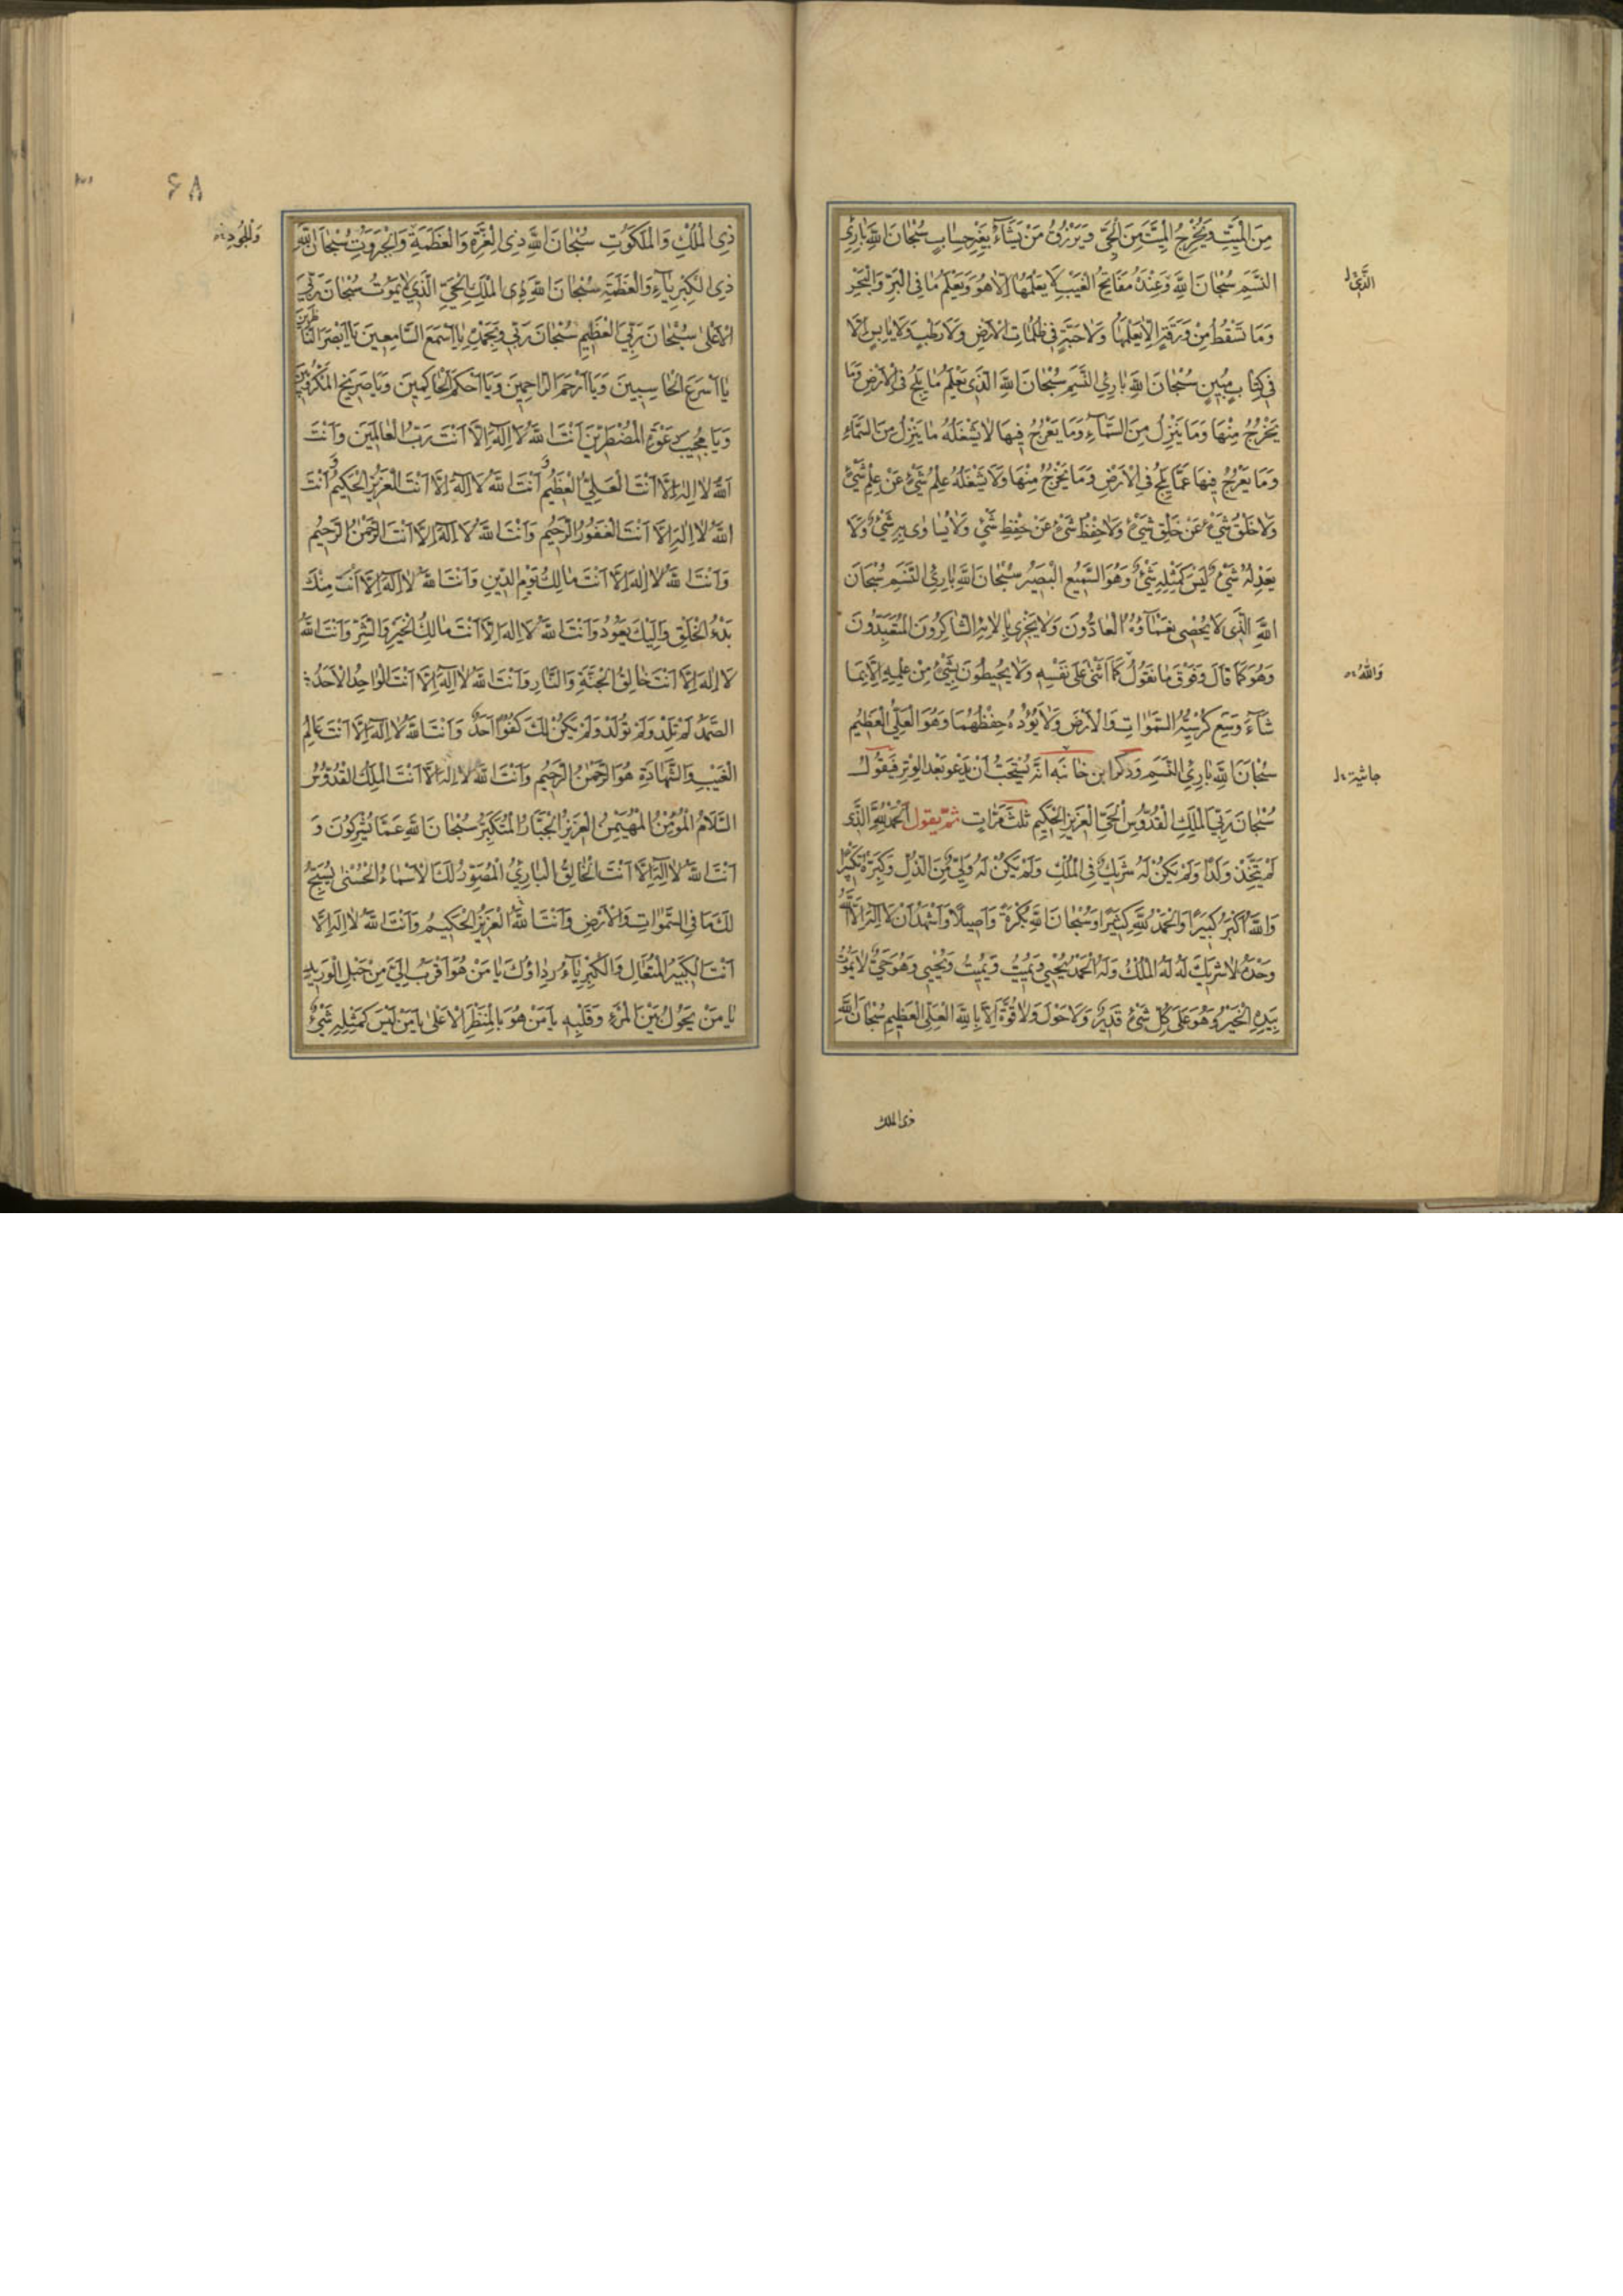 مِنَ الْمَيِّتِ وَيُخْرِجُ الْمَيِّتَ مِنَ الْحَيِّ وَيَرْزُقُ مَنْ يَشَآءُ بِغَيْرِ حِسَابٍ سُبْحَانَ اللّٰهِ بَارِئِ
النَّسَمِ سُبْحَانَ اللّٰهِ وَعِنْدَهُ مَفَاتِحُ الْغَيْبِ لَا يَعْلَمُهَا اِلَّا هُوَ وَيَعْلَمُ مَا فِى الْبَرِّ وَالْبَحْرِ
الَّذِى ل
وَمَا تَسْقُطُ مِنْ وَرَقَةٍ اِلَّا يَعْلَمُهَا وَلَا حَبَّةٍ فِى ظُلُمَاتِ الْاَرْضِ وَلَا رَطْبٍ وَلَا يَابِسٍ اِلَّا
فِى كِتَابٍ مُبِينٍ سُبْحَانَ اللّٰهِ بَارِئِ النَّسَمِ سُبْحَانَ اللّٰهِ الَّذِى يَعْلَمُ مَا يَلِجُ فِى الْاَرْضِ وَمَا
يَخْرُجُ مِنْهَا وَمَا يَنْزِلُ مِنَ السَّمَآءِ وَمَا يَعْرُجُ فِيهَا لَا يَشْغَلُهُ مَا يَنْزِلُ مِنَ السَّمَآءِ
وَمَا يَعْرُجُ فِيهَا عَمَّا يَلِجُ فِى الْاَرْضِ وَمَا يَخْرُجُ مِنْهَا وَلَا يَشْغَلُهُ عِلْمُ شَىْءٍ عَنْ عِلْمِ شَىْءٍ
وَلَا خَلْقُ شَىْءٍ عَنْ خَلْقِ شَىْءٍ وَلَا حِفْظُ شَىْءٍ عَنْ حِفْظِ شَىْءٍ وَلَا يُسَاوِى بِهِ شَىْءٌ وَلَا
يَعْدِلُهُ شَىْءٌ لَيْسَ كَمِثْلِهِ شَىْءٌ وَهُوَ السَّمِيعُ الْبَصِيرُ سُبْحَانَ اللّٰهِ بَارِئِ النَّسَمِ سُبْحَانَ
اللّٰهِ الَّذِى لَا يُحْصِى نَعْمَآؤَهُ الْعَادُّونَ وَلَا يَجْزِى بِالٰائِهِ الشَّاكِرُونَ الْمُتَعَبِّدُونَ
وَهُوَ كَمَا قَالَ وَفَوْقَ مَا نَقُولُ كَمَا اَثْنٰى عَلٰى نَفْسِهِ وَلَا يُحِيطُونَ بِشَىْءٍ مِنْ عِلْمِهِ اِلَّا بِمَا
وَاللّٰهُ
شَآءَ وَسِعَ كُرْسِيُّهُ السَّمٰوَاتِ وَالْاَرْضَ وَلَا يَؤُدُهُ حِفْظُهُمَا وَهُوَ الْعَلِىُّ الْعَظِيمُ
سُبْحَانَ اللّٰهِ بَارِئِ النَّسَمِ وَذَكَرَ ابن خانبه اَنَّهُ يُسْتَحَبُّ اَنْ يَدْعُو بَعْدَ الْوِتْرِ فَيَقُولُ
حاشية ل
سُبْحَانَ رَبِّىَ الْمَلِكِ الْقُدُّوسِ الْحَىِّ الْعَزِيزِ الْحَكِيمِ ثَلٰثَ مَرَّاتٍ ثمّ يقول اَلْحَمْدُ لِلّٰهِ الَّذِى
لَمْ يَتَّخِذْ وَلَدًا وَلَمْ يَكُنْ لَهُ شَرِيكٌ فِى الْمُلْكِ وَلَمْ يَكُنْ لَهُ وَلِىٌّ مِنَ الذُّلِّ وَكَبِّرْهُ تَكْبِيرًا
وَاللّٰهُ اَكْبَرُ كَبِيرًا وَالْحَمْدُ لِلّٰهِ كَثِيرًا وَسُبْحَانَ اللّٰهِ بُكْرَةً وَاَصِيلًا وَاَشْهَدُ اَنْ لَا اِلٰهَ اِلَّا اللّٰهُ
وَحْدَهُ لَا شَرِيكَ لَهُ لَهُ الْمُلْكُ وَلَهُ الْحَمْدُ يُحْيِى وَيُمِيتُ وَيُمِيتُ وَيُحْيِى وَهُوَ حَىٌّ لَا يَمُوتُ
بِيَدِهِ الْخَيْرُ وَهُوَ عَلٰى كُلِّ شَىْءٍ قَدِيرٌ وَلَا حَوْلَ وَلَا قُوَّةَ اِلَّا بِاللّٰهِ الْعَلِىِّ الْعَظِيمِ سُبْحَانَ اللّٰهِ
ذى الملك
۶۸
ذِى الْمُلْكِ وَالْمَلَكُوتِ سُبْحَانَ اللّٰهِ ذِى الْعِزَّةِ وَالْعَظَمَةِ وَالْجَبَرُوتِ سُبْحَانَ اللّٰهِ
ذِى الْكِبْرِيَآءِ وَالْعَظَمَةِ سُبْحَانَ اللّٰهِ الْمَلِكِ الْحَىِّ الَّذِى لَا يَمُوتُ سُبْحَانَ رَبِّىَ
الْاَعْلٰى سُبْحَانَ رَبِّىَ الْعَظِيمِ سُبْحَانَ رَبِّى وَبِحَمْدِهِ يَا اَسْمَعَ السَّامِعِينَ يَا اَبْصَرَ النَّاظِرِينَ
يَا اَسْرَعَ الْحَاسِبِينَ وَيَا اَرْحَمَ الرَّاحِمِينَ وَيَا اَحْكَمَ الْحَاكِمِينَ وَيَا صَرِيخَ الْمَكْرُوبِينَ
وَيَا مُجِيبَ دَعْوَةِ الْمُضْطَرِّينَ اَنْتَ اللّٰهُ لَا اِلٰهَ اِلَّا اَنْتَ رَبُّ الْعَالَمِينَ وَاَنْتَ
اللّٰهُ لَا اِلٰهَ اِلَّا اَنْتَ الْعَلِىُّ الْعَظِيمُ وَ اَنْتَ اللّٰهُ لَا اِلٰهَ اِلَّا اَنْتَ الْعَزِيزُ الْحَكِيمُ وَ اَنْتَ
اللّٰهُ لَا اِلٰهَ اِلَّا اَنْتَ الْغَفُورُ الرَّحِيمُ وَاَنْتَ اللّٰهُ لَا اِلٰهَ اِلَّا اَنْتَ الرَّحْمٰنُ الرَّحِيمُ
وَاَنْتَ اللّٰهُ لَا اِلٰهَ اِلَّا اَنْتَ مَالِكُ يَوْمِ الدِّينِ وَاَنْتَ اللّٰهُ لَا اِلٰهَ اِلَّا اَنْتَ مِنْكَ
بَدْءُ الْخَلْقِ وَاِلَيْكَ يَعُودُ وَاَنْتَ اللّٰهُ لَا اِلٰهَ اِلَّا اَنْتَ مَالِكُ الْخَيْرِ وَالشَّرِّ وَاَنْتَ اللّٰهُ
لَا اِلٰهَ اِلَّا اَنْتَ خَالِقُ الْجَنَّةِ وَالنَّارِ وَاَنْتَ اللّٰهُ لَا اِلٰهَ اِلَّا اَنْتَ الْوَاحِدُ الْاَحَدُ
الصَّمَدُ لَمْ تَلِدْ وَلَمْ تُولَدْ وَلَمْ يَكُنْ لَكَ كُفُوًا اَحَدٌ وَاَنْتَ اللّٰهُ لَا اِلٰهَ اِلَّا اَنْتَ عَالِمُ
الْغَيْبِ وَالشَّهَادَةِ هُوَ الرَّحْمٰنُ الرَّحِيمُ وَاَنْتَ اللّٰهُ لَا اِلٰهَ اِلَّا اَنْتَ الْمَلِكُ الْقُدُّوسُ
السَّلَامُ الْمُؤْمِنُ الْمُهَيْمِنُ الْعَزِيزُ الْجَبَّارُ الْمُتَكَبِّرُ سُبْحَانَ اللّٰهِ عَمَّا يُشْرِكُونَ وَ
اَنْتَ اللّٰهُ لَا اِلٰهَ اِلَّا اَنْتَ الْخَالِقُ الْبَارِئُ الْمُصَوِّرُ لَكَ الْاَسْمَاءُ الْحُسْنٰى يُسَبِّحُ
لَكَ مَا فِى السَّمٰوَاتِ وَالْاَرْضِ وَاَنْتَ اللّٰهُ الْعَزِيزُ الْحَكِيمُ وَاَنْتَ اللّٰهُ لَا اِلٰهَ اِلَّا
اَنْتَ الْكَبِيرُ الْمُتَعَالِ وَالْكِبْرِيَآءُ رِدَاؤُكَ يَا مَنْ هُوَ اَقْرَبُ اِلَىَّ مِنْ حَبْلِ الْوَرِيدِ
يَا مَنْ يَحُولُ بَيْنَ الْمَرْءِ وَقَلْبِهِ يَا مَنْ هُوَ بِالْمَنْظَرِ الْاَعْلٰى يَا مَنْ لَيْسَ كَمِثْلِهِ شَىْءٌ